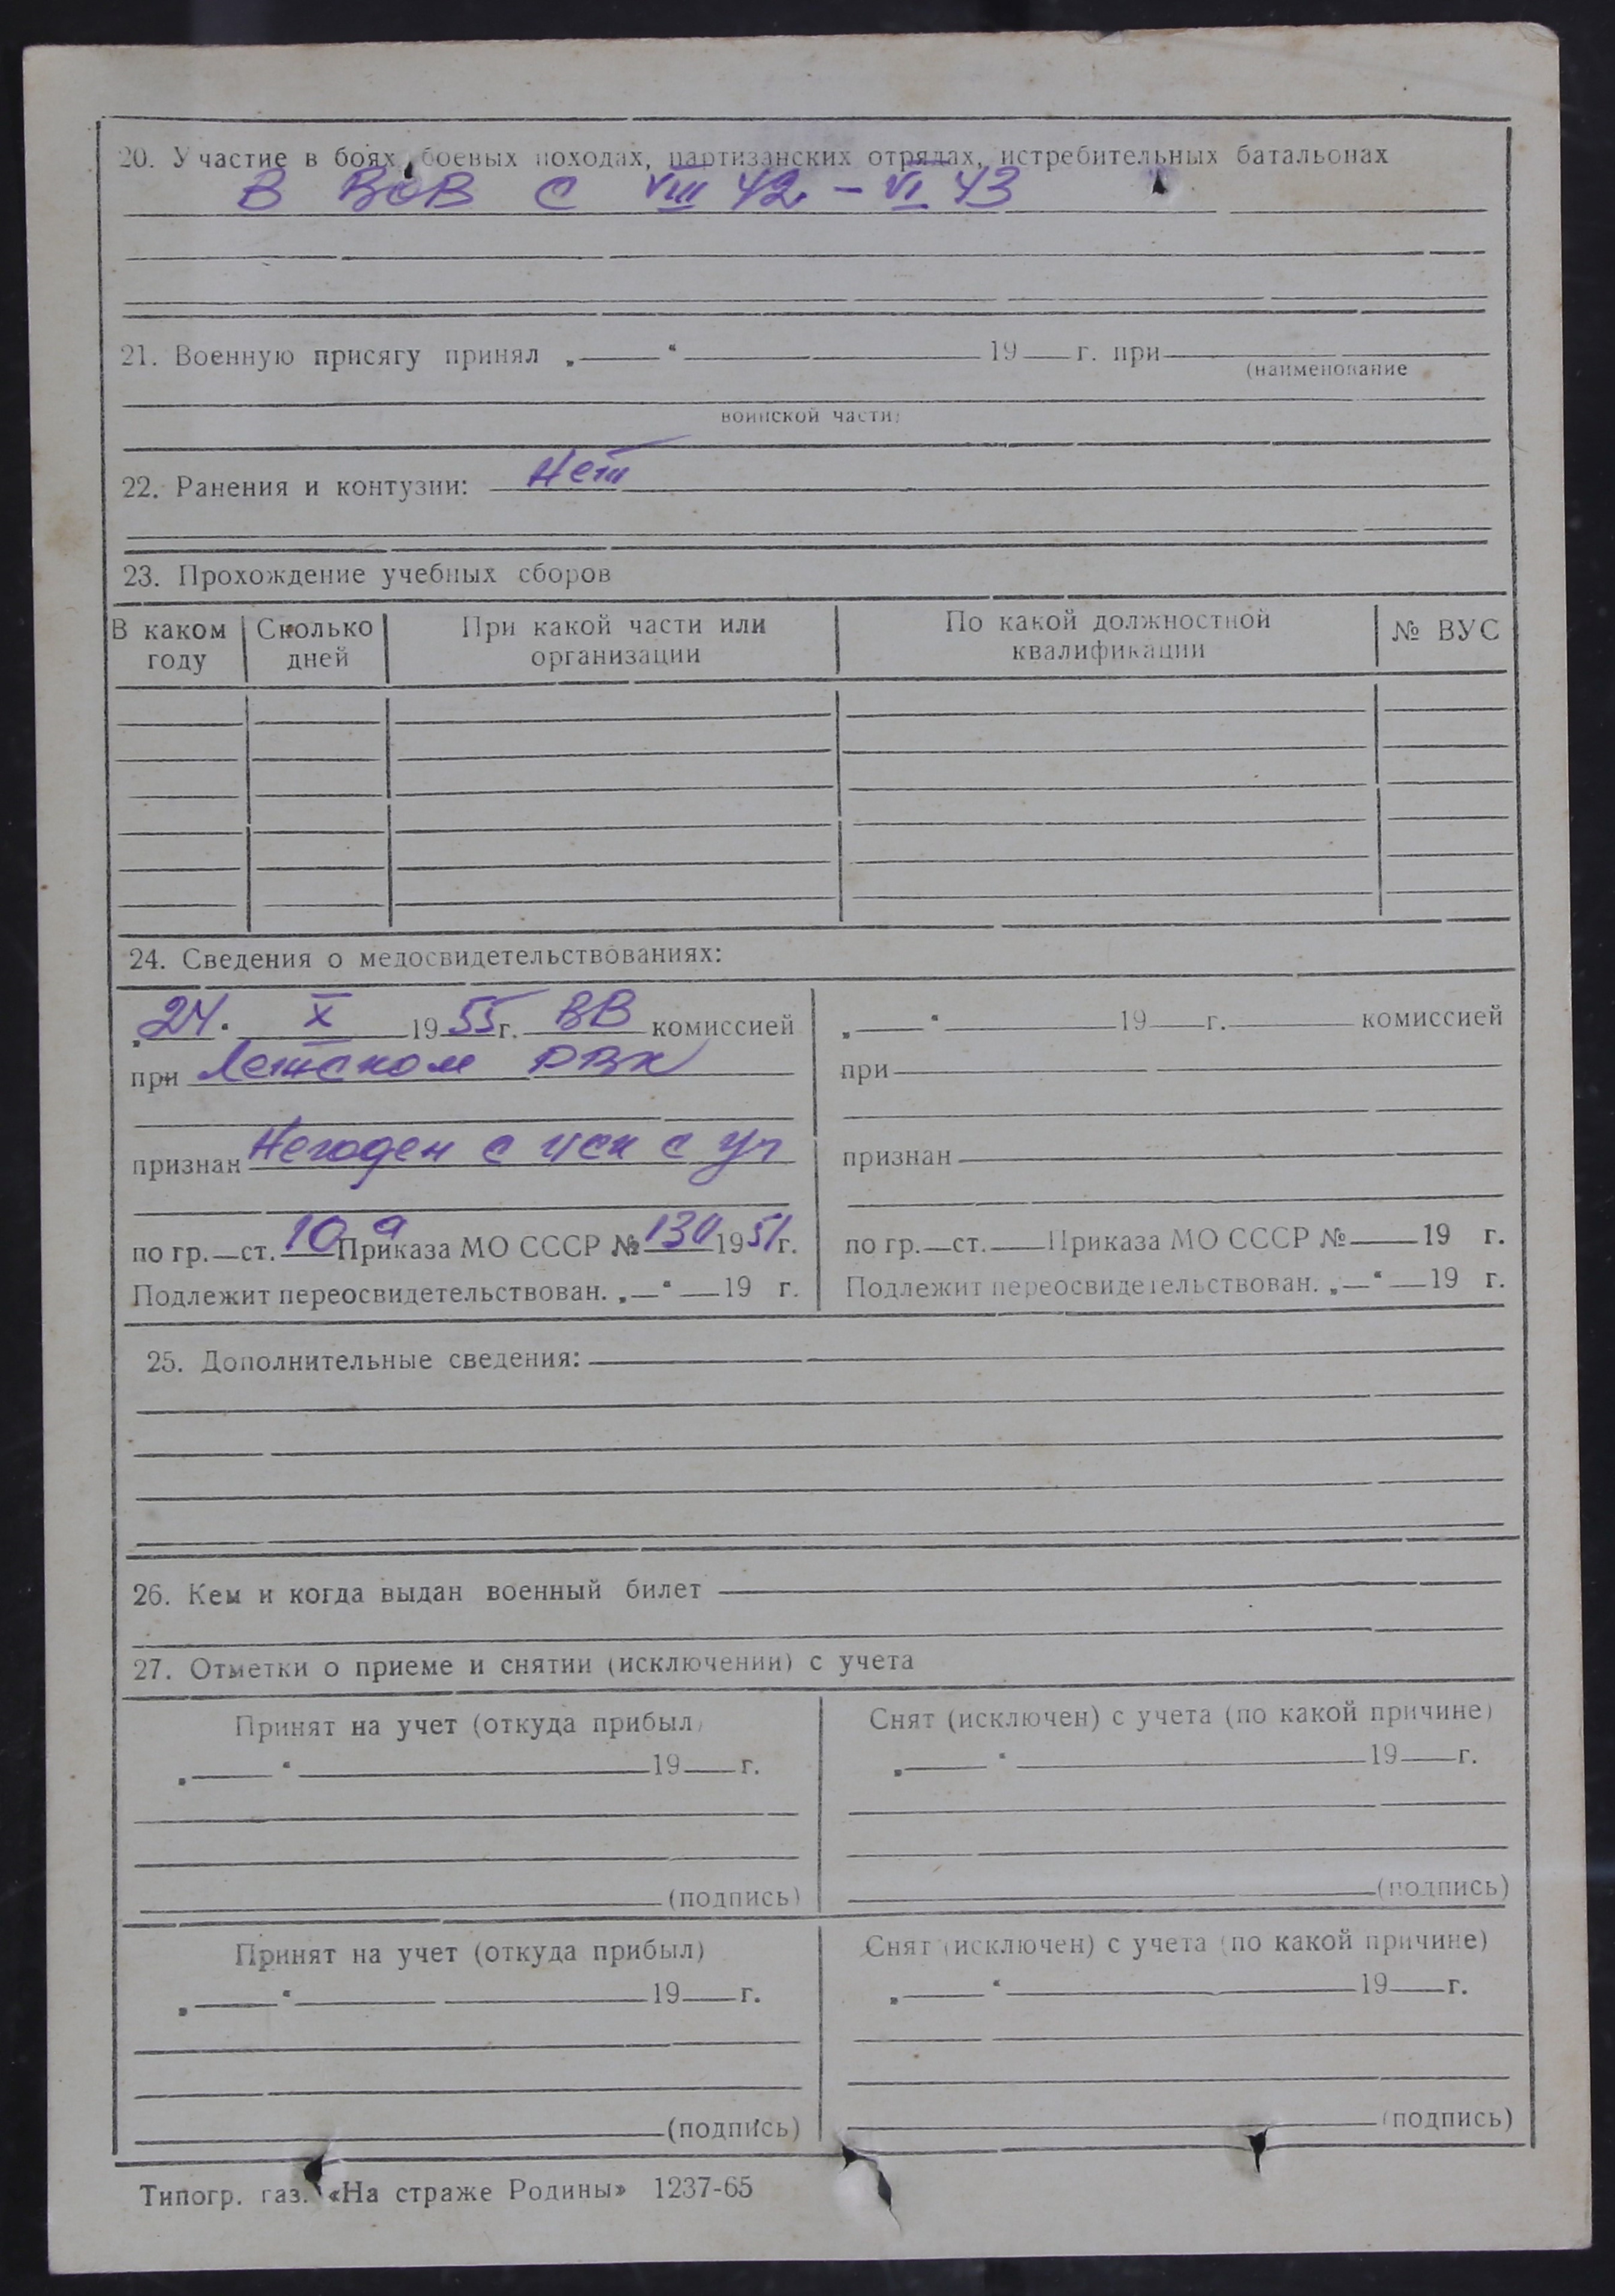 20. Участие в боях, боевых походах, партизанских отрядах, истребительных батальонах
В ВОВ с VIII 42 – VI 43
21. Военную присягу принял „ “ 19 г. при
(наименование
воинской части)
22. Ранения и контузии: Нет
23. Прохождение учебных сборов
В каком году Сколько дней При какой части или организации По какой должностной квалификации № ВУС
24. Сведения о медосвидетельствованиях:
„24“ X 1955г. ВВ комиссией
при Летском РВК
признан Негоден с иск с уч
по гр. ст. 10а Приказа МО СССР № 130 1951г.
Подлежит переосвидетельствован. „ “ 19 г.
„ “ 19 г. комиссией
при
признан
по гр. ст. Приказа МО СССР № 19 г.
Подлежит переосвидетельствован. „ “ 19 г.
25. Дополнительные сведения:
26. Кем и когда выдан военный билет
27. Отметки о приеме и снятии (исключении) с учета
Принят на учет (откуда прибыл)
„ “ 19 г.
(подпись)
Снят (исключен) с учета (по какой причине)
„ “ 19 г.
(подпись)
Принят на учет (откуда прибыл)
„ “ 19 г.
(подпись)
Снят (исключен) с учета (по какой причине)
„ “ 19 г.
(подпись)
Типогр. газ. «На страже Родины» 1237-65